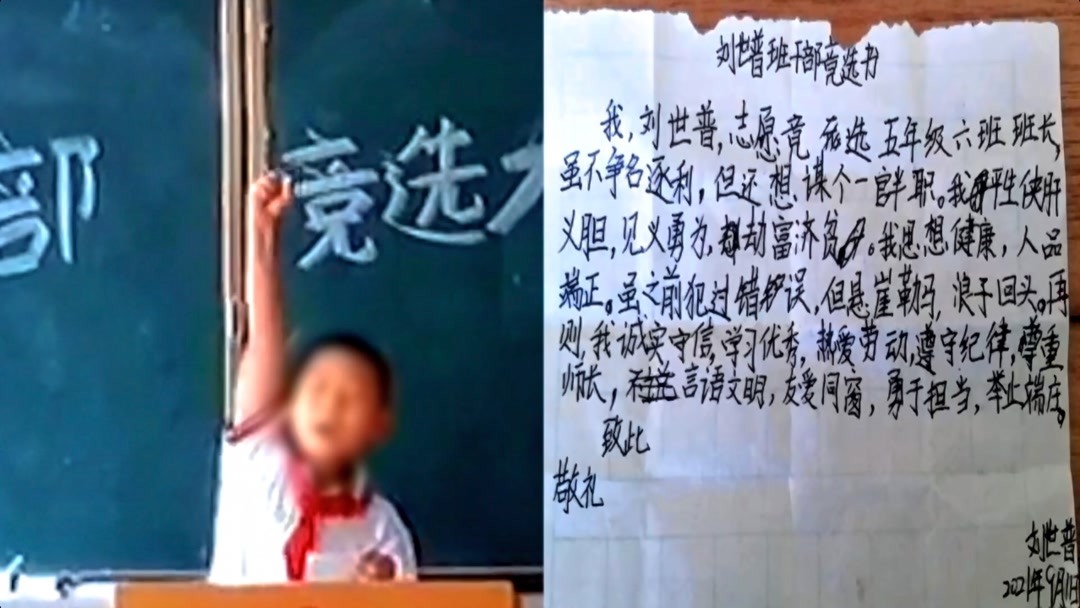 部 竞选
刘世普班干部竞选书
我,刘世普,志愿竞选五年级六班班长,
虽不争名逐利,但还想谋个一官半职。我平性侠肝
义胆,见义勇为,劫富济贫。我思想健康,人品
端正。虽之前犯过错误,但悬崖勒马,浪子回头。再
则,我诚实守信,学习优秀,热爱劳动,遵守纪律,尊重
师长,言语文明,友爱同窗,勇于担当,举止端庄。
致此
敬礼
刘世普
2021年9月1日